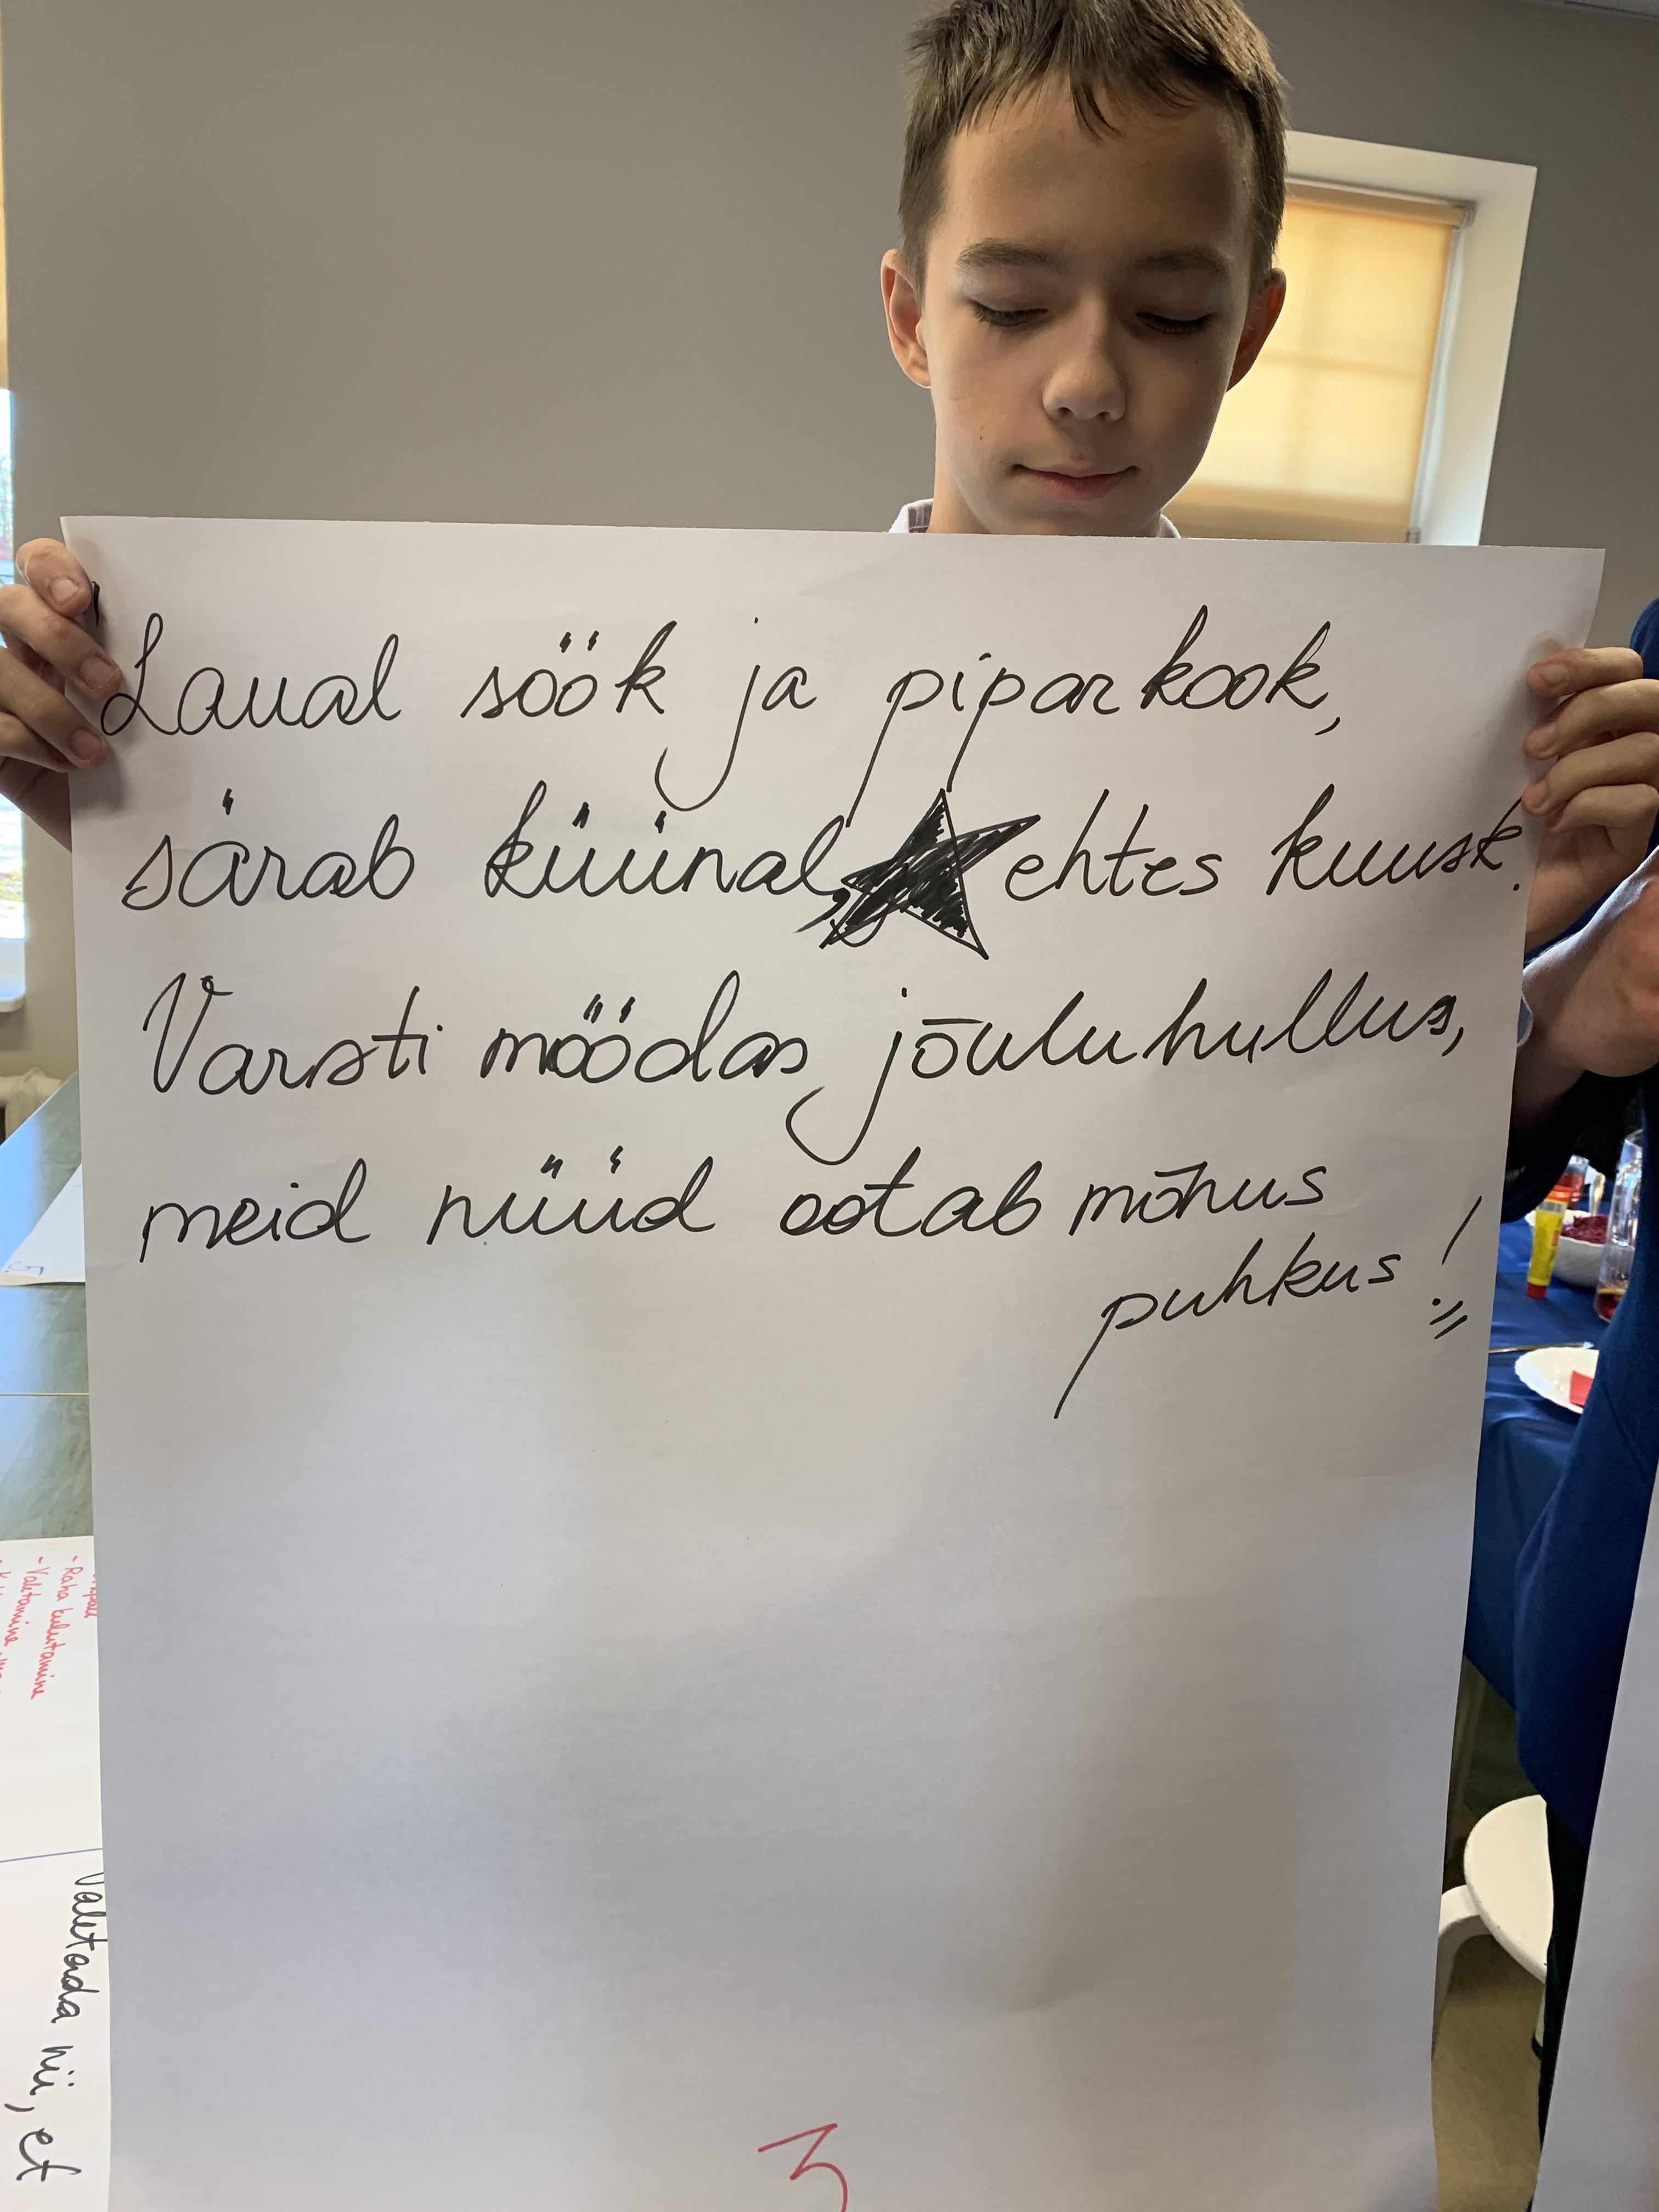 "Laual söök ja piparkook,
särab küünal, ehtes kuusk.
Varsti möödas jõuluhullus,
meid nüüd ootab mõnus
puhkus!"
3
5.
- Raha kulutamine
- Valetamine
Valetada nii, et